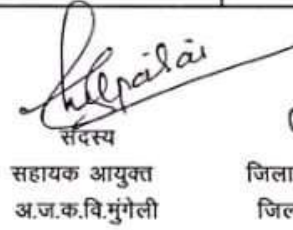 सदस्य
सहायक आयुक्त जिला
अ.ज.क.वि.मुंगेली जिल